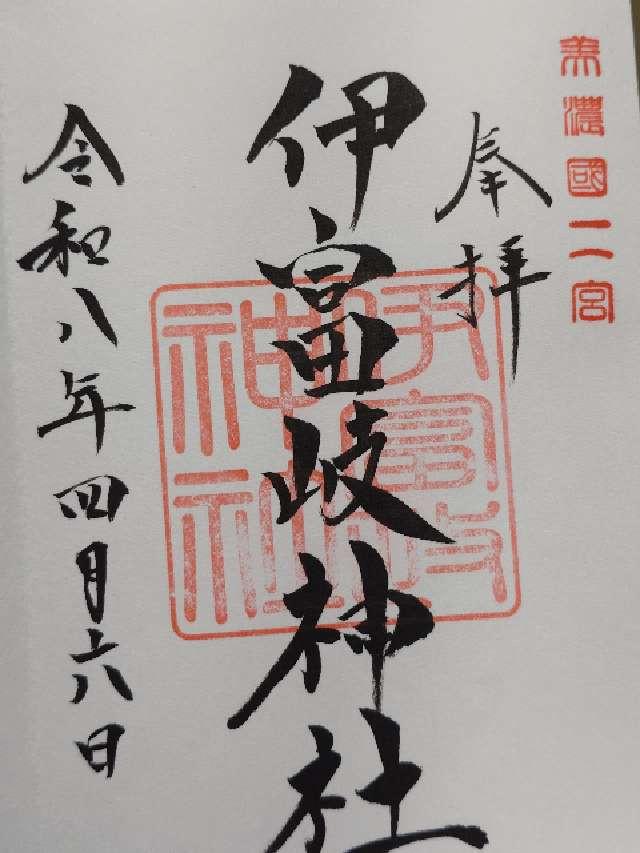 美濃國二宮
奉拝
伊富岐神社
伊富岐神社
令和八年四月六日